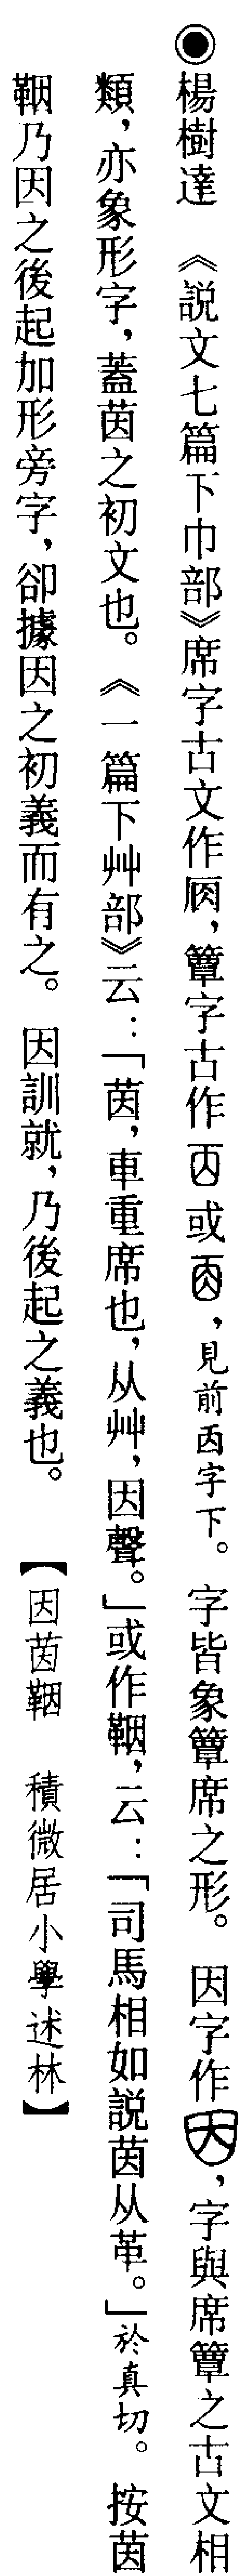 ◉楊樹達　《説文七篇下巾部》席字古文作𠩎，簟字古作㐁或𠄫，見前㐁字下。字皆象簟席之形。因字作因，字與席簟之古文相
類，亦象形字，蓋茵之初文也。《一篇下艸部》云：「茵，車重席也，从艸，因聲。」或作鞇，云：「司馬相如説茵从革。」於真切。按茵
鞇乃因之後起加形旁字，卻據因之初義而有之。因訓就，乃後起之義也。【因茵鞇　積微居小學述林】